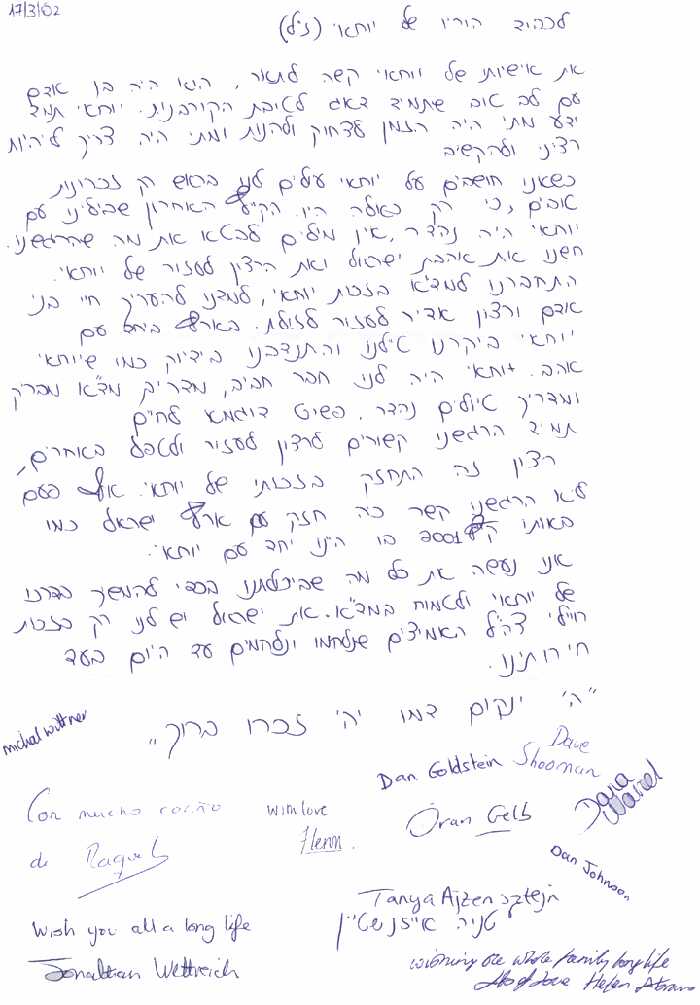 17/3/02
לכבוד הוריו של יוחאי (ז"ל)
את אישיותו של יוחאי קשה לתאר, הוא היה בן אדם
עם לב טוב שתמיד דאג לטובת הקורבנות. יוחאי תמיד
ידע מתי היה הזמן לצחוק ולהנות ומתי היה צריך להיות
רציני ולהקשיב
כשאנו חושבים על יוחאי עולים לנו בראש רק זכרונות
טובים, כי רק כאלה היו. הקיץ האחרון שבילינו עם
יוחאי היה נהדר, אין מילים לבטא את מה שהרגשנו.
חשנו את אהבת ישראל ואת הרצון לעזור של יוחאי.
התחברנו למד"א בזכות יוחאי, למדנו להעריך חיי בני
אדם ורצון אדיר לעזור לזולת. בארץ ביחד עם
יוחאי ביקרנו טילנו והתנדבנו בידיוק כמו שיוחאי
אהב. יוחאי היה לנו חבר חביב, מדריך מד"א מבריק
ומדריך טיולים נהדר. פשוט דוגמא לחיים
תמיד הרגשנו קשורים לרצון לעזור ולטפל באחרים,
רצון זה התחזק בזכותו של יוחאי. אף פעם
לא הרגשנו קשר כה חזק עם ארץ ישראל כמו
באותו קיץ 2001 בו היינו יחד עם יוחאי.
אנו נעשה את כל מה שביכולתנו בכדי להמשיך בדרכו
של יוחאי ולטמוח במד"א. את ישראל יש לנו רק בזכות
חיילי צה"ל האמיצים שנלחמו ונלחמים עד היום בעד
חירותינו.
"ה' ינקום דמו יהי זכרו ברוך"
michal wittner
Dan Goldstein
Dave
Shooman
Con mucho cariño
de Raquel
with love
Oran Gelb
Dana
Dan Johnson
Tanya Ajzensztejn
טניה אייזנשטיין
Wish you all a long life
Jonathan Wettreich
wishing the whole family long life
Lots of love Helen